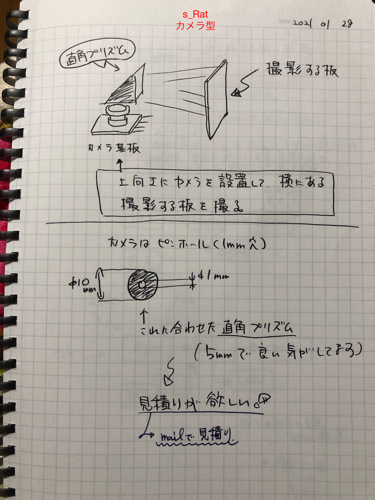 s_Rat
カメラ型
2021 01 28
直角プリズム
撮影する板
カメラ基板
上向きにカメラを設置して、横にある
撮影する板を撮る。
カメラは ピンホール (1mm穴)
φ10mm
φ1mm
これに合わせた 直角プリズム
(5mmで良い気がしてきる)
見積りが欲しい。
mailで見積り